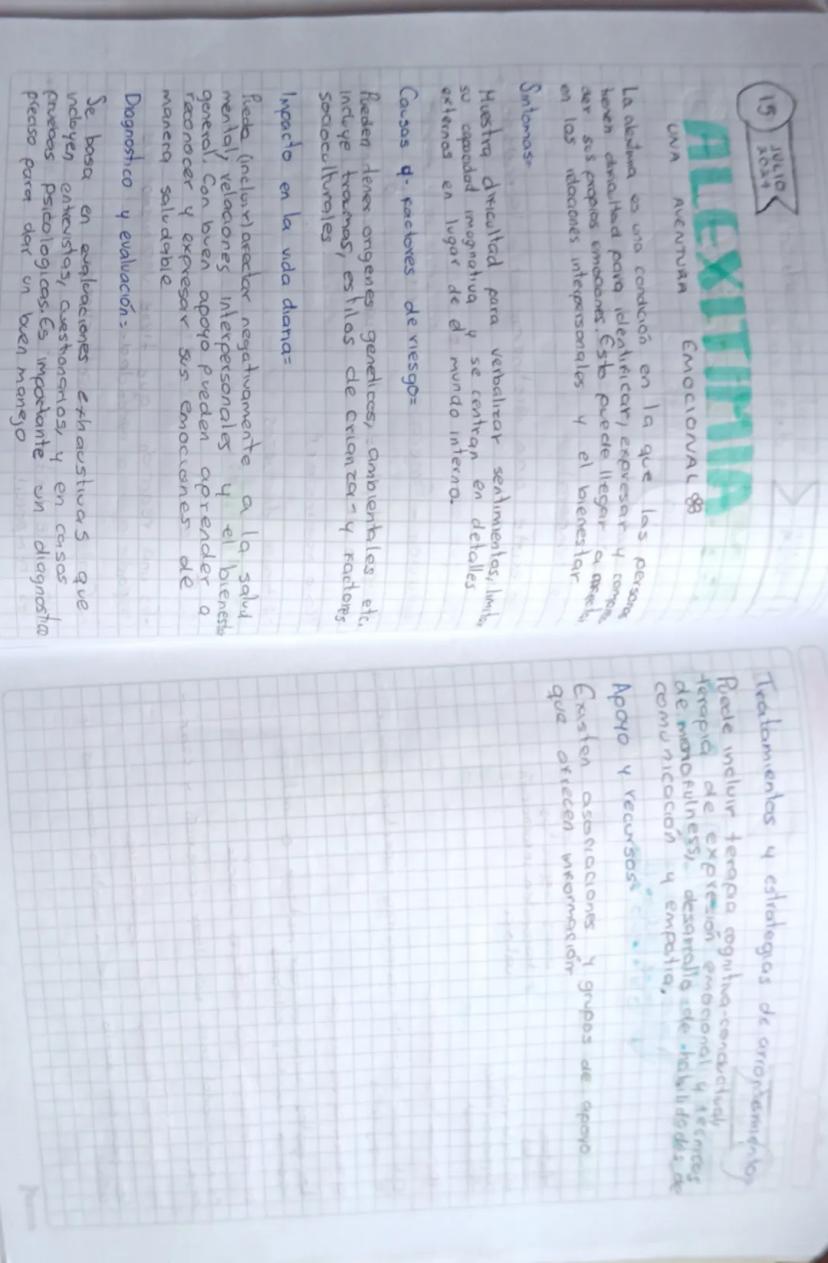 15 JULIO 2024
ALEXITIMIA
UNA AVENTURA EMOCIONAL
La alexitimia es una condición en la que las personas
tienen dificultad para identificar, expresar y compren
der sus propias emociones. Esto puede llegar a afectar
en las relaciones interpersonales y el bienestar
Sintomas=
Muestra dificultad para verbalizar sentimientos, limita
su capacidad imaginativa y se centran en detalles
externos en lugar de el mundo interno.
Causas y factores de riesgo=
Pueden tener origenes geneticos, ambientales etc.
incluye traumas, estilos de crianza y factores
socioculturales
Impacto en la vida diaria=
Puede (incluir) afectar negativamente a la salud
mental, relaciones interpersonales y el bienestar
general. Con buen apoyo pueden aprender a
reconocer y expresar sus emociones de
manera saludable
Diagnostico y evaluación=
Se basa en evaluaciones exhaustivas que
incluyen entrevistas, cuestionarios, y en casos
pruebas psicologicas. Es importante un diagnostico
preciso para dar un buen manejo
Tratamientos y estrategias de afrontamiento
Puede incluir terapia cognitiva-conductual
terapia de expresión emocional y tecnicas
de mindfulness, desarrollo de habilidades de
comunicación y empatia.
Apoyo y recursos
Existen asociaciones y grupos de apoyo
que ofrecen información